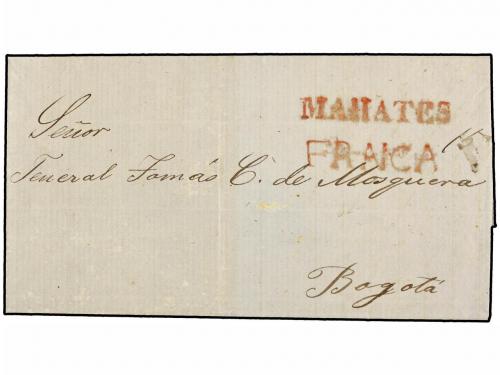 MAHATES
FRANCA
Señor
General Tomás C. de Mosquera
Bogotá